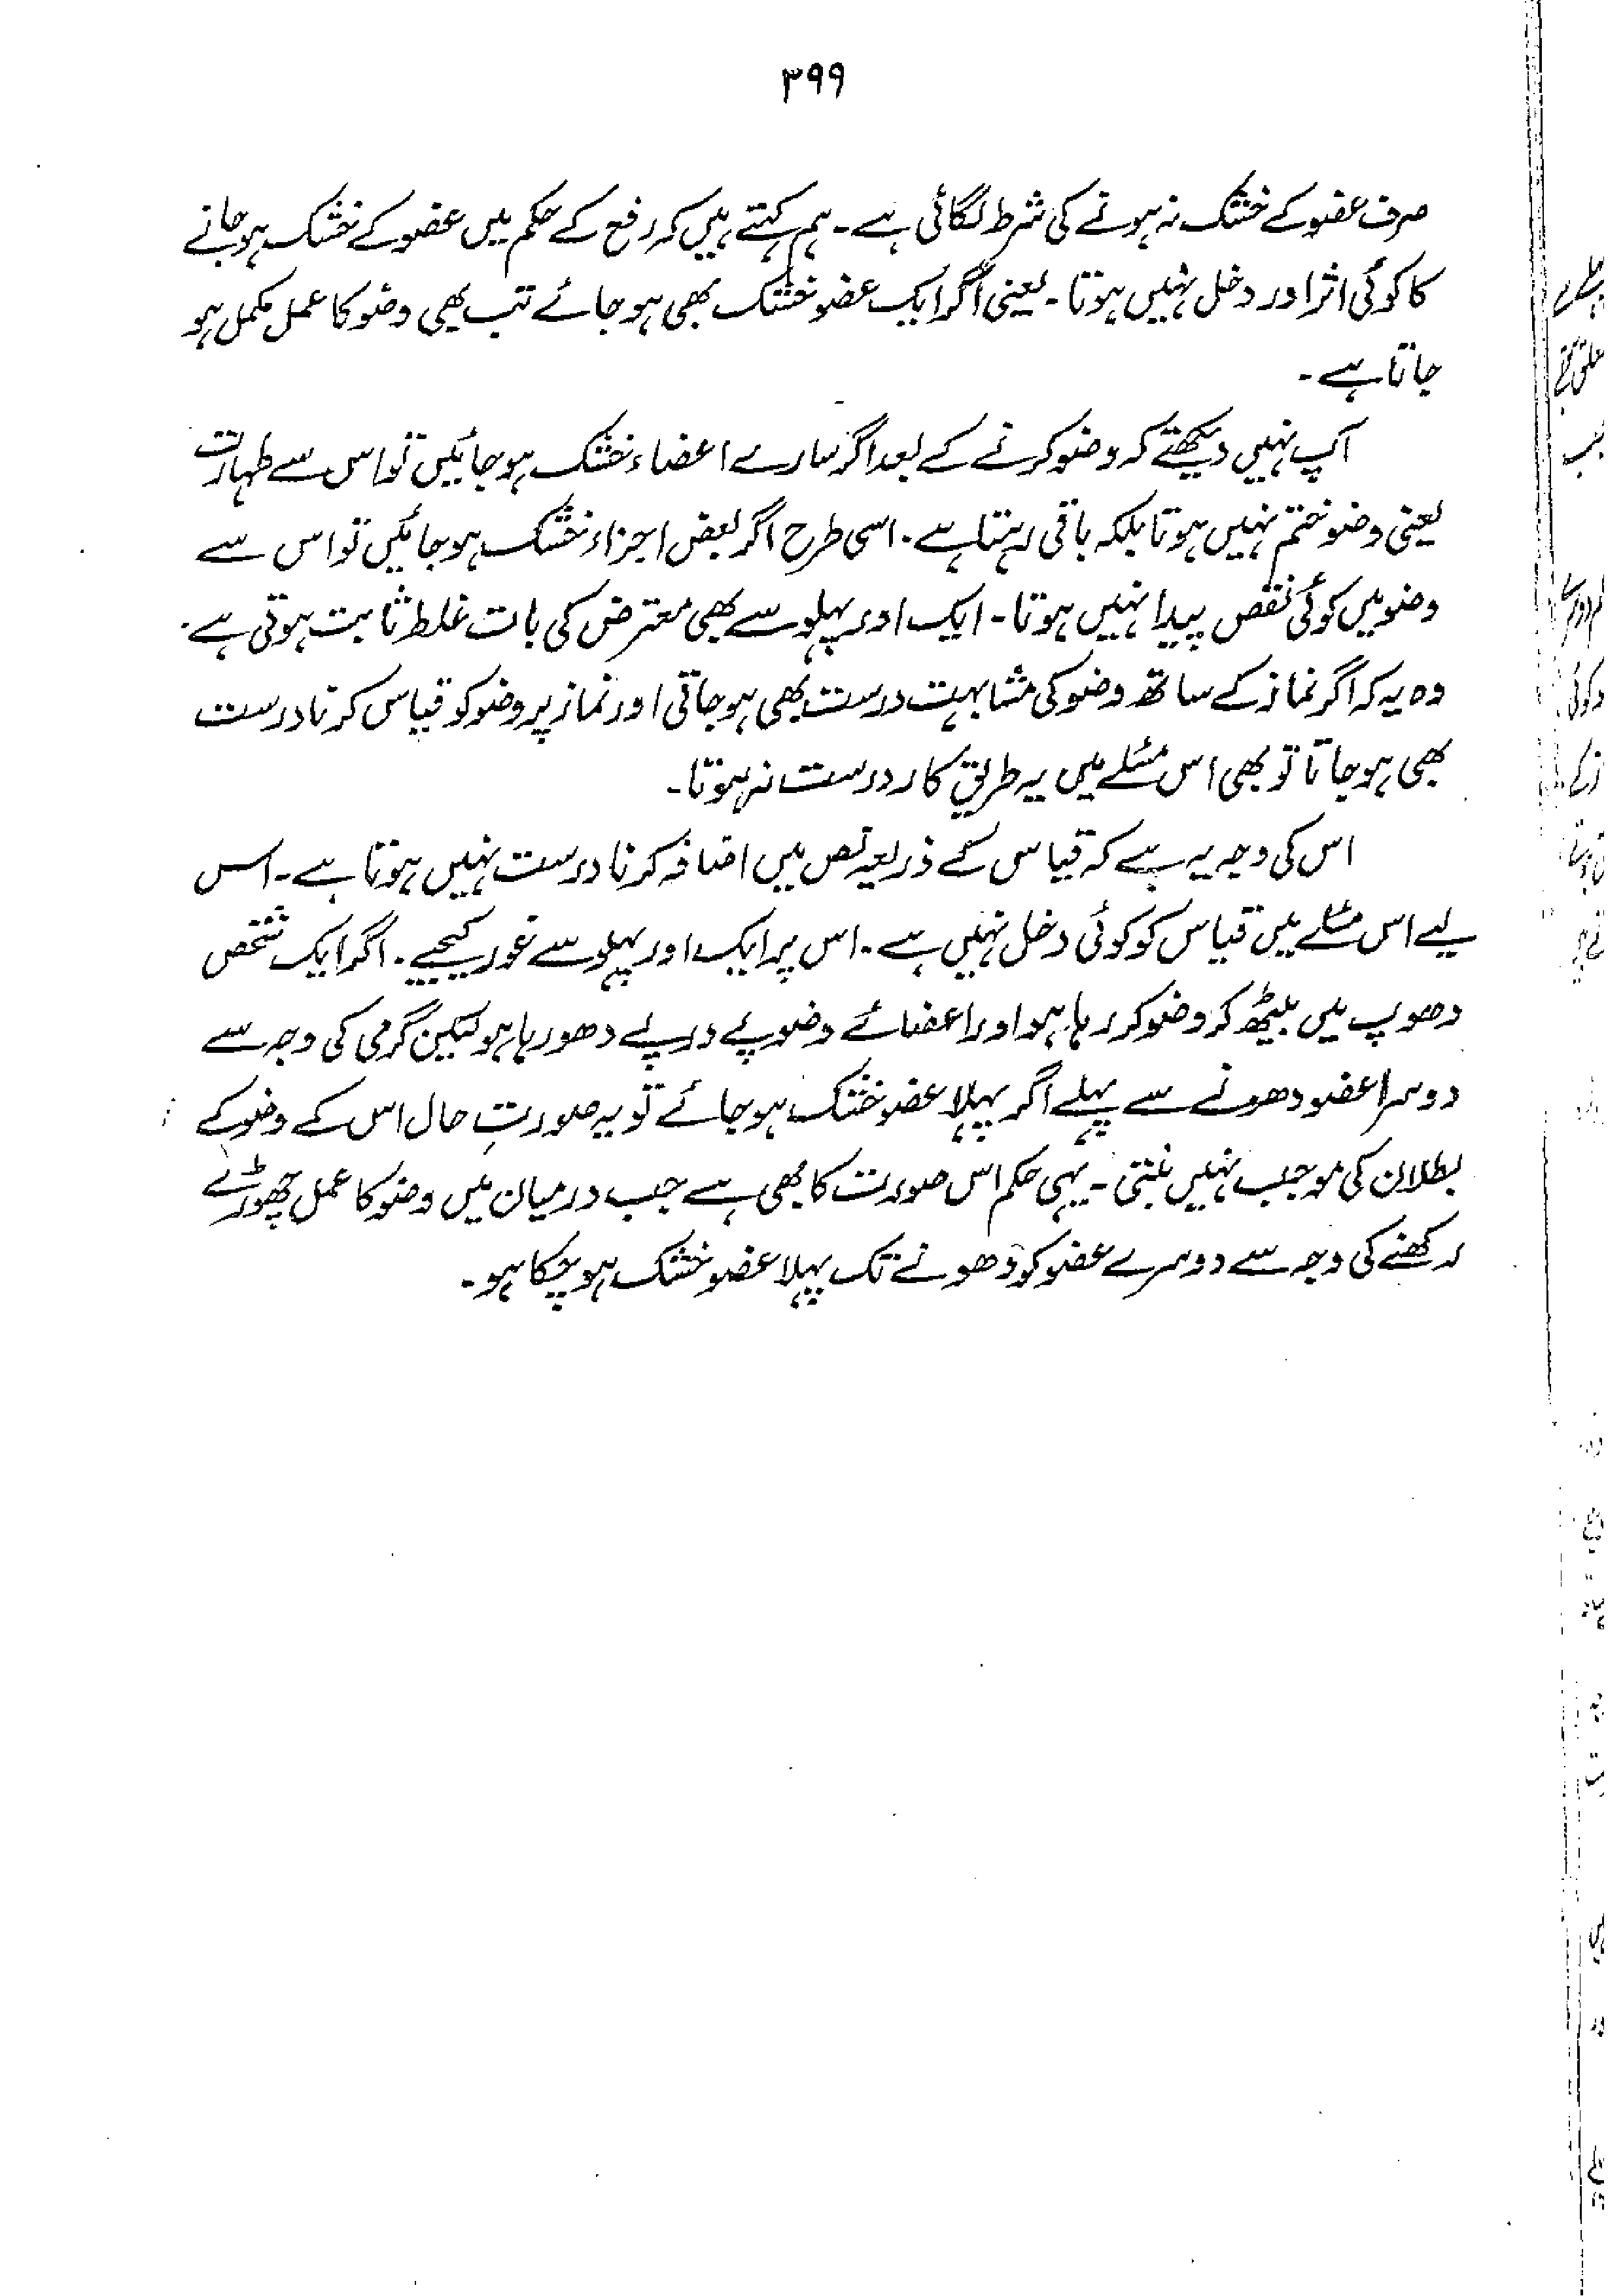 ۳۹۹
صرف عضو کے خشک نہ ہونے کی شرط لگائی ہے۔ ہم کہتے ہیں کہ رفع کے حکم میں عضو کے خشک ہو جانے
کا کوئی اثر اور دخل نہیں ہوتا۔ یعنی اگر ایک عضو خشک بھی ہو جائے تب بھی وضو کا عمل مکمل ہو
جاتا ہے۔
آپ نہیں دیکھتے کہ وضو کرنے کے بعد اگر سارے اعضاء خشک ہو جائیں تو اس سے طہارت
یعنی وضو ختم نہیں ہوتا بلکہ باقی رہتا ہے۔ اسی طرح اگر بعض اجزاء خشک ہو جائیں تو اس سے
وضو میں کوئی نقص پیدا نہیں ہوتا۔ ایک اور پہلو سے بھی معترض کی بات غلط ثابت ہوتی ہے۔
وہ یہ کہ اگر نماز کے ساتھ وضو کی مشابہت درست بھی ہو جاتی اور نماز پر وضو کو قیاس کرنا درست
بھی ہو جاتا تو بھی اس مسئلے میں یہ طریق کار درست نہ ہوتا۔
اس کی وجہ یہ ہے کہ قیاس کے ذریعہ نص میں اضافہ کرنا درست نہیں ہوتا ہے۔ اس
لیے اس مسئلے میں قیاس کو کوئی دخل نہیں ہے۔ اس پر ایک اور پہلو سے غور کیجیے۔ اگر ایک شخص
دھوپ میں بیٹھ کر وضو کر رہا ہو اور اعضائے وضو پے در پے دھو رہا ہو لیکن گرمی کی وجہ سے
دوسرا عضو دھونے سے پہلے اگر پہلا عضو خشک ہو جائے تو یہ صورتِ حال اس کے وضو کے
بطلان کی موجب نہیں بنتی۔ یہی حکم اس صورت کا بھی ہے جب درمیان میں وضو کا عمل چھوڑے
رکھنے کی وجہ سے دوسرے عضو کو دھونے تک پہلا عضو خشک ہو چکا ہو۔